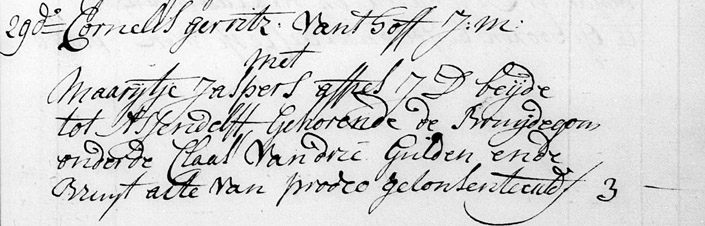 29do Cornelis gerritz: Vant Hoff J:M:
met
Maarytje Jaspers appel J D beyde
tot Assendelft Gehorende de Bruydegom
onderde Claas Van drie Gulden ende
Bruyt acte van prodeo geConsenteerd / 3 —